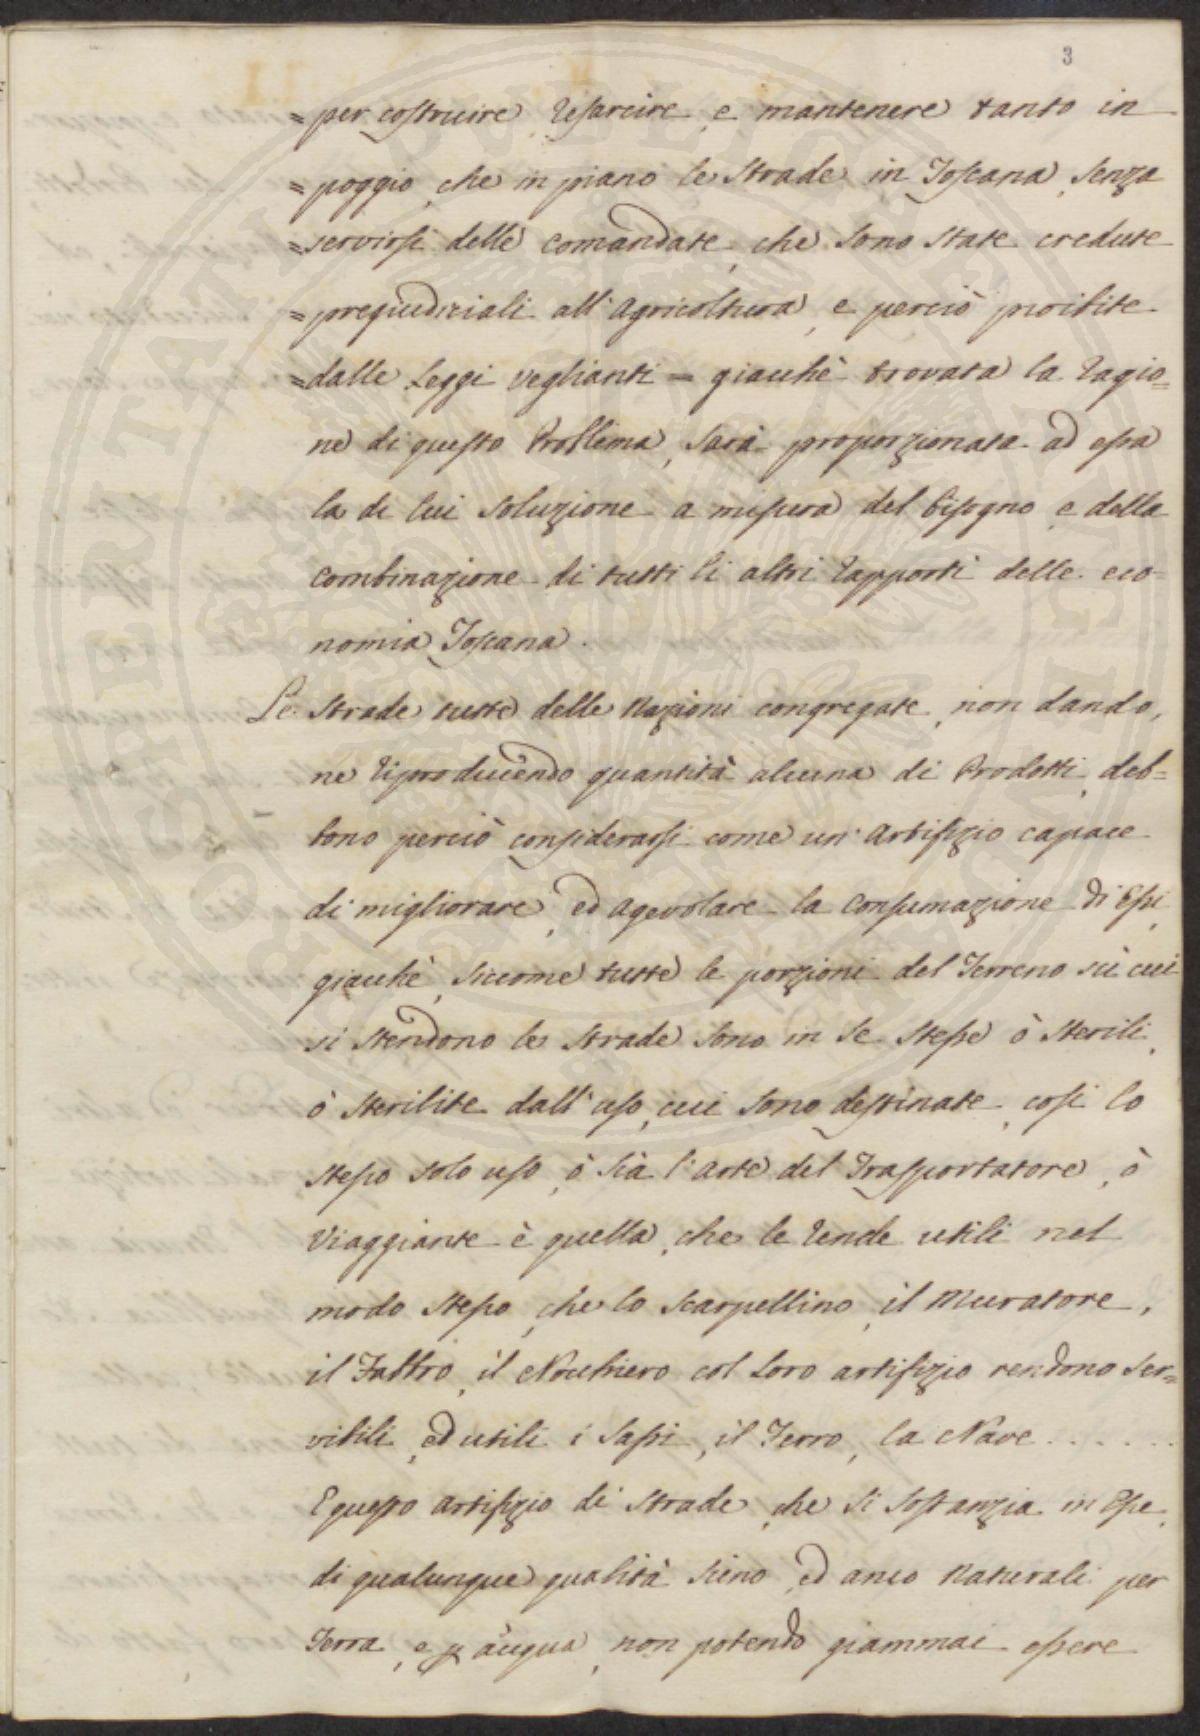 3
=per costruire, resarcire, e mantenere tanto in
=poggio, che in piano le Strade in Toscana, senza
=servirsi delle comandate, che sono state credute
=pregiudiziali all'agricoltura, e perciò proibite
=dalle Leggi veglianti = giacchè trovata la ragio=
ne di questo Problema, sarà proporzionata ad essa
la di lui soluzione a misura del bisogno e della
combinazione di tutti li altri rapporti delle eco=
nomia Toscana.
Le Strade tutte delle Nazioni congregate, non dando,
ne riproducendo quantità alcuna di Prodotti, deb=
bono perciò considerarsi come un' Artifizio capace
di migliorare, ed agevolare la Consumazione di Essi,
giacchè, siccome tutte le porzioni del Terreno sù cui
si stendono le strade sono in se stesse ò sterili,
ò sterilite dall'uso, cui sono destinate, così lo
stesso solo uso, ò sià l'arte del Trasportatore, ò
Viaggiante è quella, che le rende utili nel
modo stesso, che lo scarpellino, il Muratore,
il Fabbro, il Nocchiero col loro artifizio rendono ser=
vibili, ed utili i Sassi, il Ferro, la Nave......
E questo artifizio di Strade, che si sostanzia in Esse,
di qualunque qualità sieno, ed anco Naturali per
Terra, e p acqua, non potendo giammai essere
PROSPERITATI PUBLICAE AUGENDAE